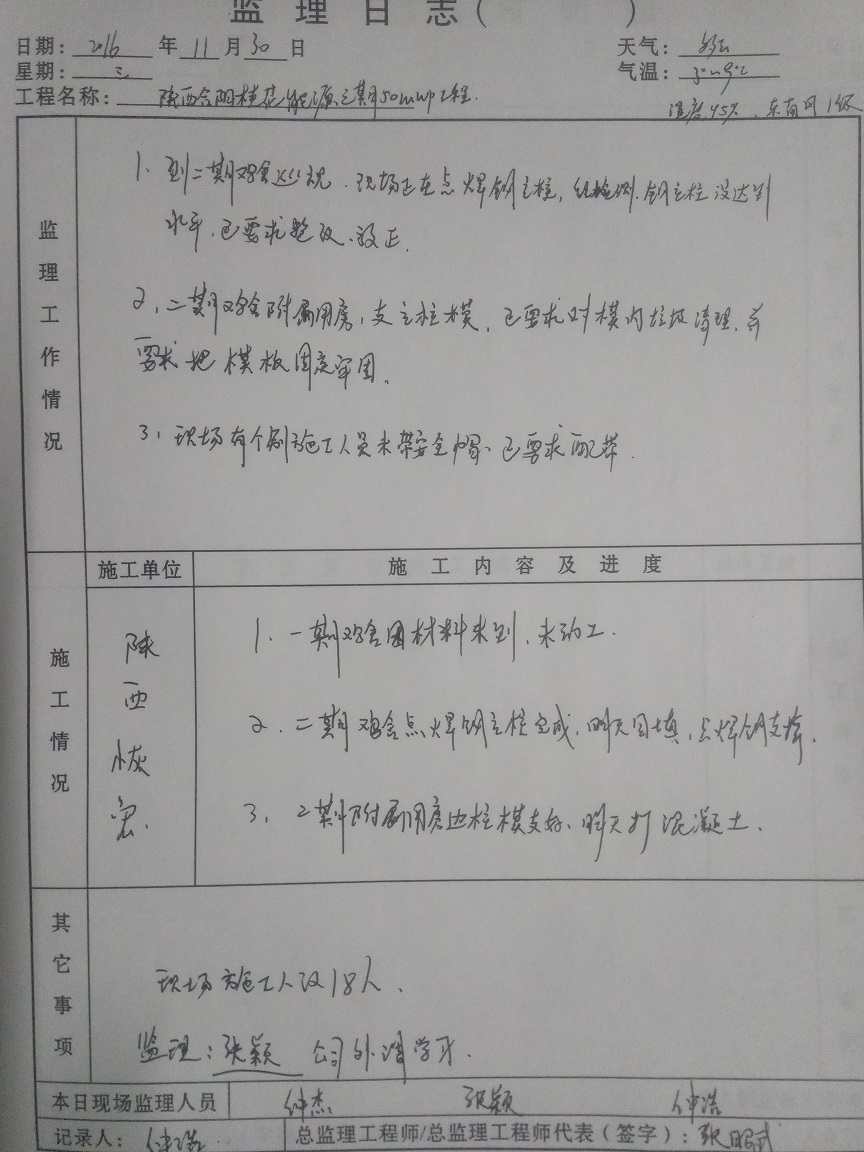 监理日志(        )
日期: 2016 年 11 月 30 日
天气: 多云
星期: 三
气温: 3℃~9℃
工程名称: 陕西合阳桂花能源二期50MWP工程.
湿度45%, 东南风1级
监理工作情况
1. 到二期鸡舍巡视. 现场正在点焊钢立柱, 经检测. 钢立柱没达到
水平, 已要求整改、校正.
2, 二期鸡舍附属用房, 支立柱模, 已要求对模内垃圾清理, 并
要求把模板固定牢固.
3, 现场有个别施工人员未带安全帽、已要求配带.
施工情况
施工单位
施工内容及进度
陕西恢宏.
1. 一期鸡舍因材料未到, 未动工.
2. 二期鸡舍点焊钢立柱完成, 明天回填, 点焊钢支撑.
3, 二期附属用房边柱模支好、明天打混凝土.
其它事项
现场施工人员18人.
监理: 张颖 公司外调学习.
本日现场监理人员 仲杰 张颖 仲浩
记录人: 仲浩 总监理工程师/总监理工程师代表(签字): 张明武